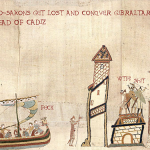 O-SAXONS GET LOST AND CONQUER GIBRALTAR
EAD OF CADIZ
FUCK
WTF!